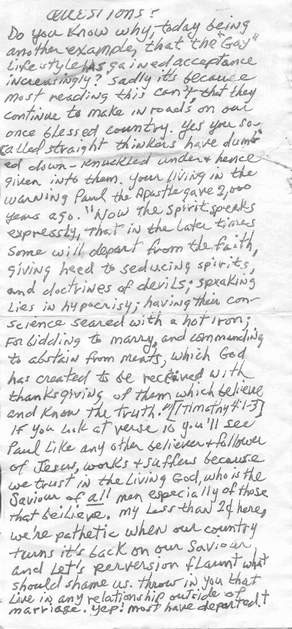 QUESTIONS?
Do you know why, today being
another example, that the "Gay"
Lifestyle has gained acceptance
increasingly? Sadly it's because
most reading this can't, that they
continue to make inroads on our
once blessed country. Yes you so-
called straight thinkers have dumb-
ed down - knuckled under & hence
given into them. Your living in the
warning Paul the Apostle gave 2,000
years ago. "Now the Spirit speaks
expressly, that in the later times
some will depart from the faith,
giving heed to seducing spirits,
and doctrines of devils; speaking
lies in hypocrisy; having their con-
science seared with a hot iron;
Forbidding to marry, and commanding
to abstain from meats, which God
has created to be received with
thanksgiving of them which believe
and know the truth."[I Timothy 4:1-3]
If you look at verse 10 you'll see
Paul like any other believer & follower
of Jesus, works & suffers because
we trust in the Living God, who is the
Saviour of all men especially of those
that beilieve. My less than 2¢ here,
we're pathetic when our country
turns it's back on our Saviour,
and let's perversion flaunt what
should shame us. Throw in you that
live in any relationship outside of
marriage. Yep! most have departed!